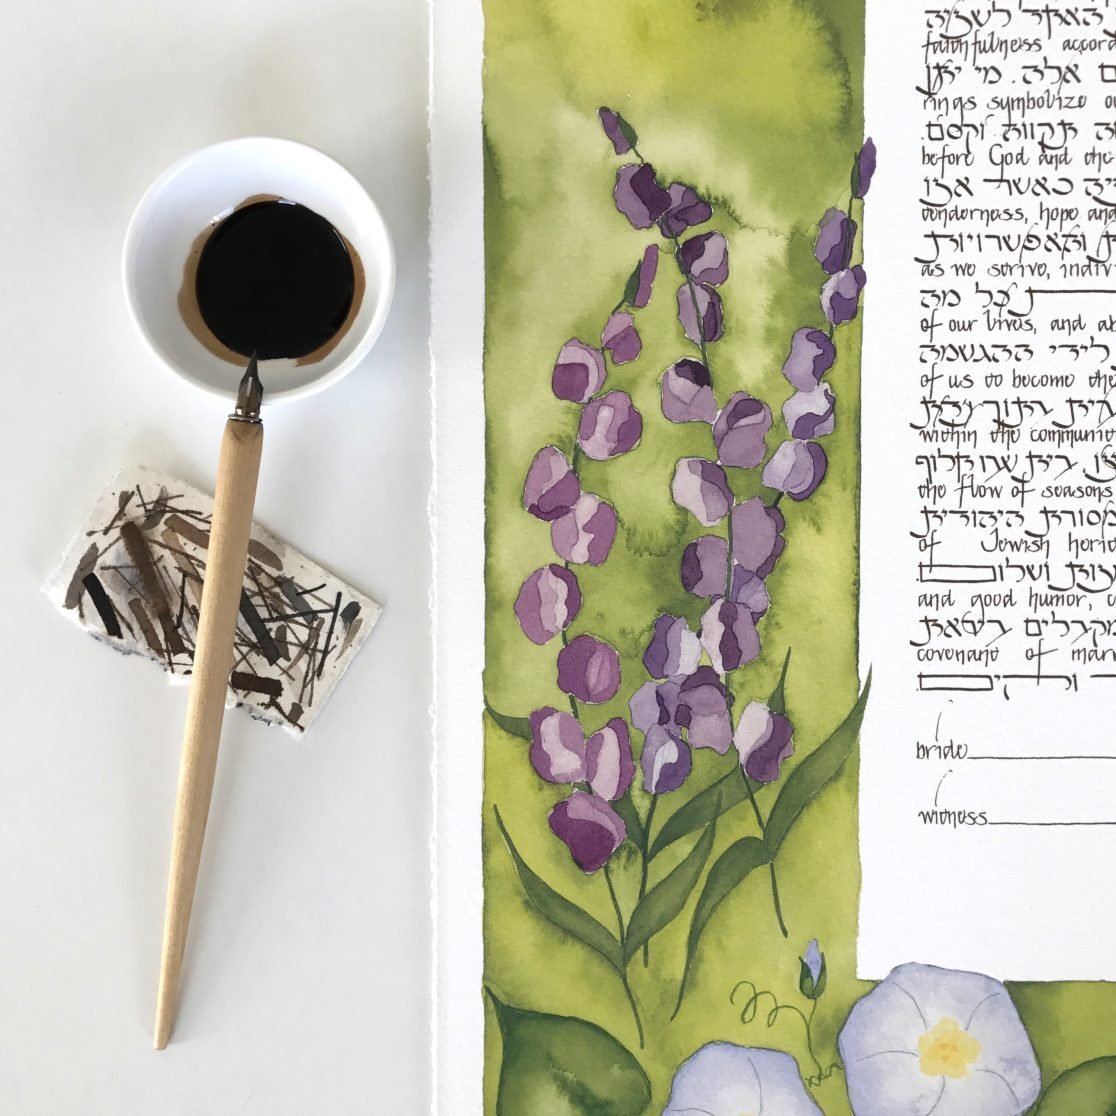 faithfulness accord
ם אלה. מי יתן
rings symbolize ou
תקווה וקסם.
before God and the
כאשר אנו
tenderness, hope and
והאפשרויות
as we strive, indiv
כל מה
of our lives, and ab
לידי ההגשמה
of us to become the
בתוך
within the communit
the flow of seasons
מסורת היהודית
of Jewish herit
ושלום
and good humor,
מקבלים בזאת
covenant of marr
וקיים
bride
witness